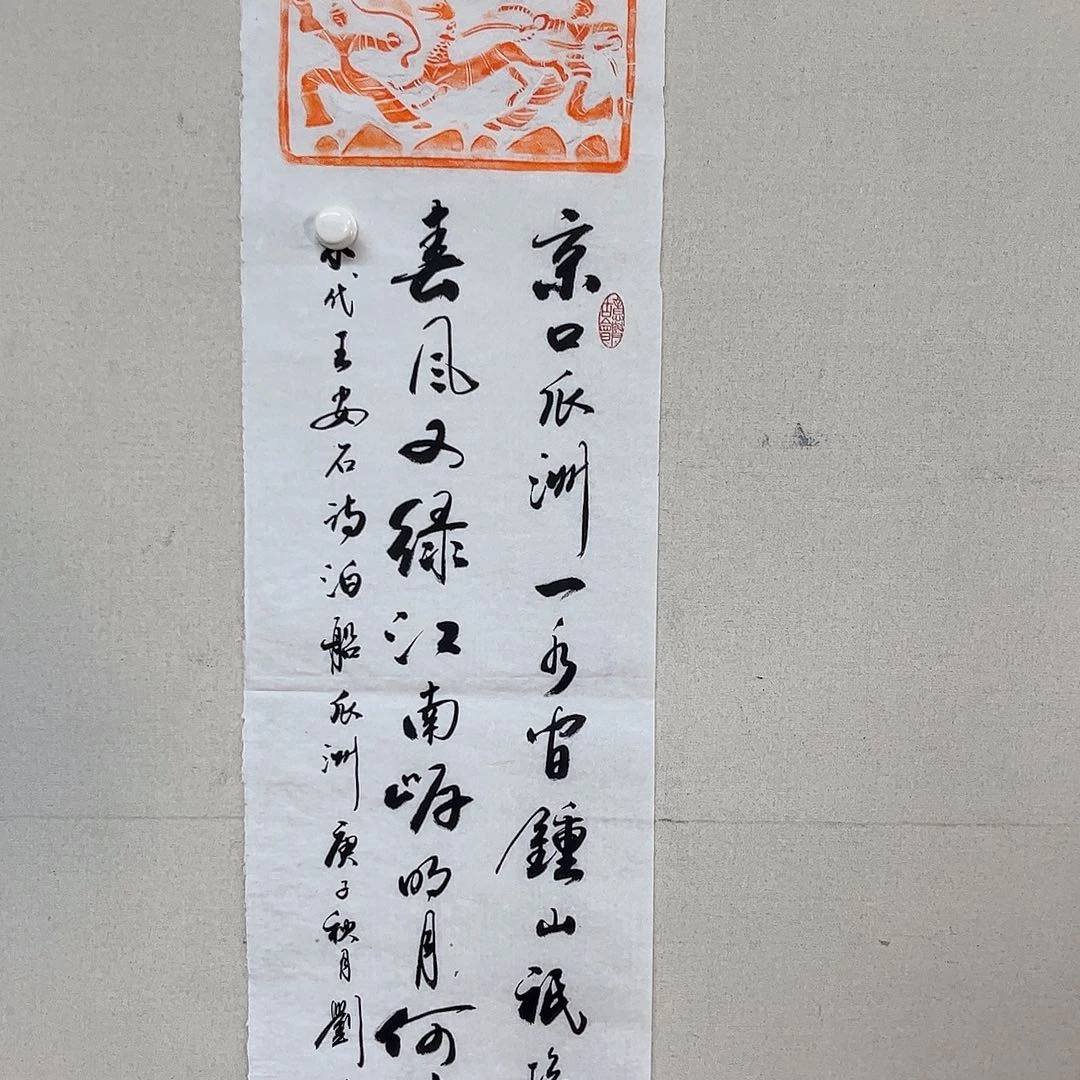 京口瓜洲一水間鍾山祗隔
春風又綠江南岸明月何
宋代王安石詩泊船瓜洲庚子秋月劉